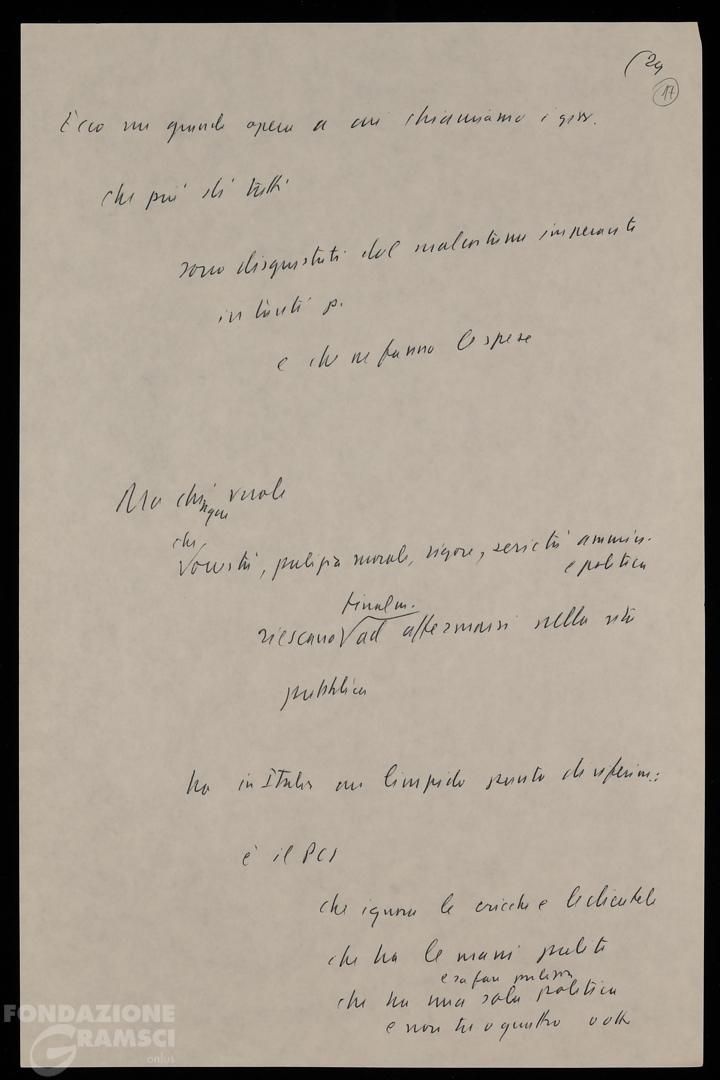 (24
17
Ecco una grande opera a cui chiamiamo i giov.
che più di tutti
sono disgustati dal malcostume imperante
in tanti p.
e che ne fanno le spese
Ma chiunque vuole
che
onestà, pulizia morale, rigore, serietà ammin.
e politica
finalm.
riescano ad affermarsi nella vita
pubblica
ha in Italia un limpido punto di riferim.:
è il PCI
che ignora le cricche e le clientele
che ha le mani pulite
e sa fare pulizia
che ha una sola politica
e non tre o quattro
FONDAZIONE
GRAMSCI
onlus